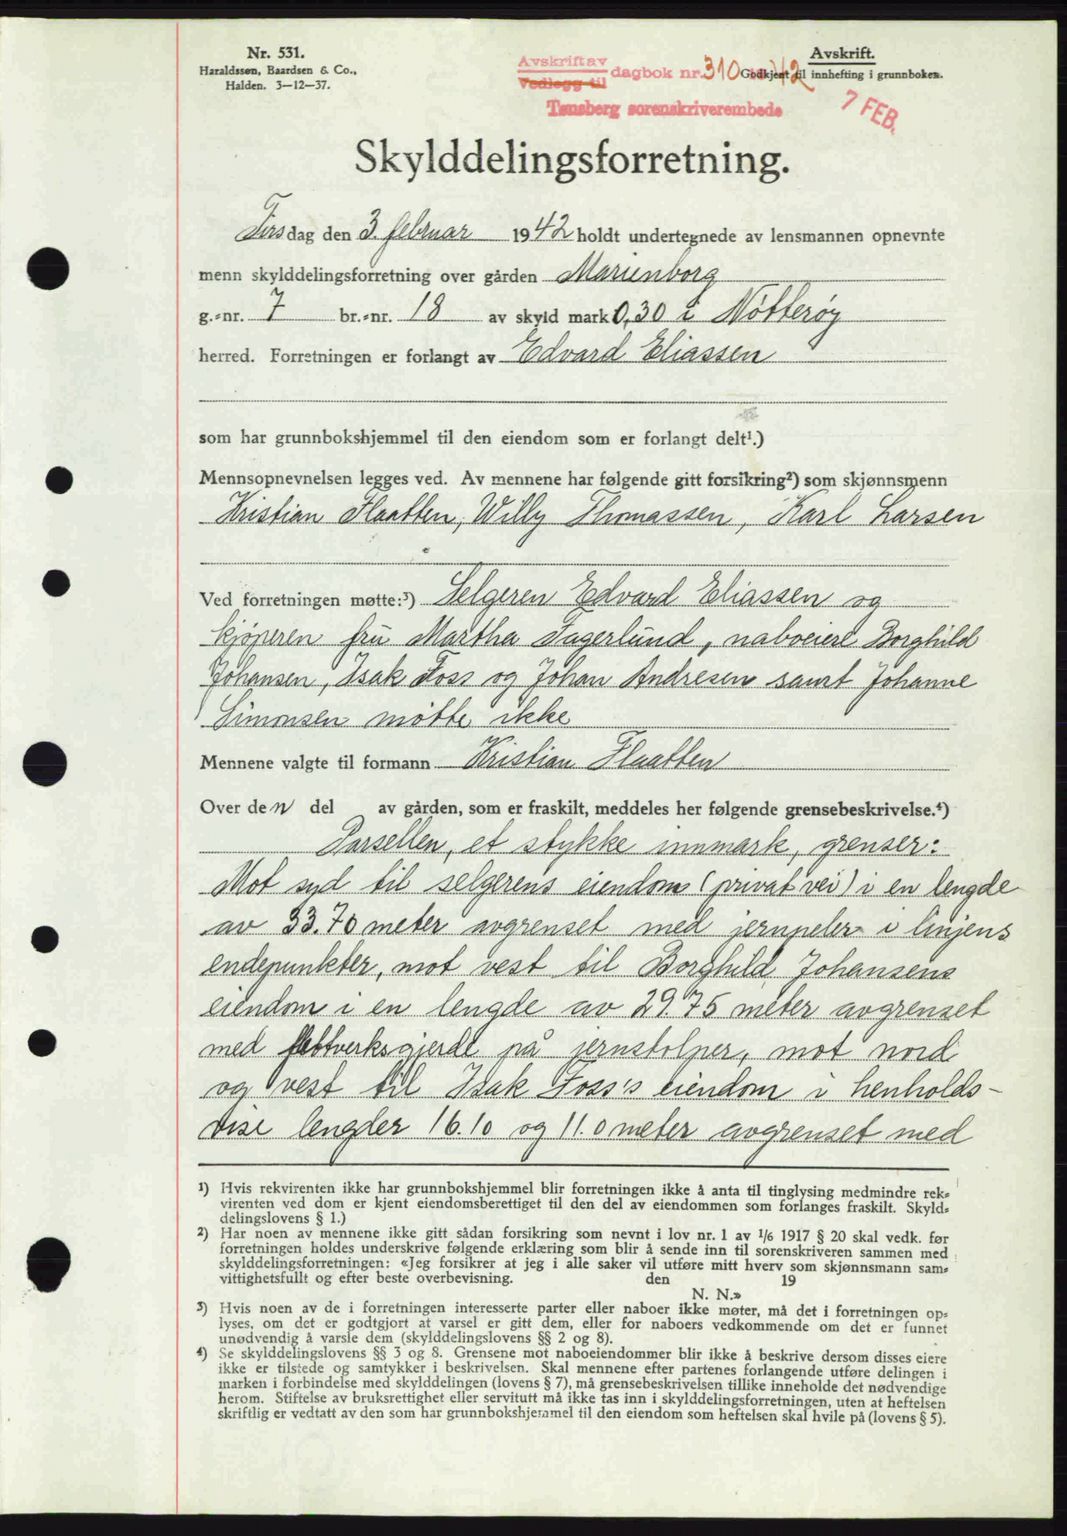 Nr. 531.
Haraldssen, Baardsen & Co.,
Halden. 3—12—37.
Avskrift av
Vedlegg til
dagbok nr. 310 /42
Tønsberg sorenskriverembede
Avskrift.
Godkjent til innhefting i grunnboken.
7 FEB.
Skylddelingsforretning.
Tirsdag den 3. februar 1942 holdt undertegnede av lensmannen opnevnte
menn skylddelingsforretning over gården Marienborg
g.-nr. 7 br.-nr. 18 av skyld mark 0,30 i Nøtterøy
herred. Forretningen er forlangt av Edvard Eliassen
som har grunnbokshjemmel til den eiendom som er forlangt delt¹.)
Mennsopnevnelsen legges ved. Av mennene har følgende gitt forsikring²) som skjønnsmenn
Kristian Flaatten, Willy Thomassen, Karl Larsen
Ved forretningen møtte:³) Selgeren Edvard Eliassen og
kjøperen fru Martha Fagerlund, naboeiere Borghild
Johansen, Isak Foss og Johan Andresen samt Johanne
Simonsen møtte ikke
Mennene valgte til formann Kristian Flaatten
Over den del av gården, som er fraskilt, meddeles her følgende grensebeskrivelse.⁴)
Parsellen, et stykke innmark, grenser:
Mot syd til selgerens eiendom (privat vei) i en lengde
av 33.70 meter avgrenset med jernpeler i linjens
endepunkter, mot vest til Borghild Johansens
eiendom i en lengde av 29.75 meter avgrenset
med flettverksgjerde på jernstolper, mot nord
og vest til Isak Foss's eiendom i henholds-
vise lengder 16.10 og 11.0 meter avgrenset med
¹) Hvis rekvirenten ikke har grunnbokshjemmel blir forretningen ikke å anta til tinglysing medmindre rek-
virenten ved dom er kjent eiendomsberettiget til den del av eiendommen som forlanges fraskilt. Skyld-
delingslovens § 1.)
²) Har noen av mennene ikke gitt sådan forsikring som nevnt i lov nr. 1 av 1/6 1917 § 20 skal vedk. før
forretningen holdes underskrive følgende erklæring som blir å sende inn til sorenskriveren sammen med
skylddelingsforretningen: «Jeg forsikrer at jeg i alle saker vil utføre mitt hverv som skjønnsmann sam-
vittighetsfullt og efter beste overbevisning. den 19
N. N.»
³) Hvis noen av de i forretningen interesserte parter eller naboer ikke møter, må det i forretningen op-
lyses, om det er godtgjort at varsel er gitt dem, eller for naboers vedkommende om det er funnet
unødvendig å varsle dem (skylddelingslovens §§ 2 og 8).
⁴) Se skylddelingslovens §§ 3 og 8. Grensene mot naboeiendommer blir ikke å beskrive dersom disses eiere
ikke er tilstede og samtykker i beskrivelsen. Skal mennene efter partenes forlangende utføre delingen i
marken i forbindelse med skylddelingen (lovens § 7), må grensebeskrivelsen tillike inneholde det nødvendige
herom. Stiftelse av bruksrettighet eller servitutt må ikke tas inn i skylddelingsforretningen, uten at heftelsen
skriftlig er vedtatt av den som har grunnbokshjemmel til den eiendom som heftelsen skal hvile på (lovens § 5).